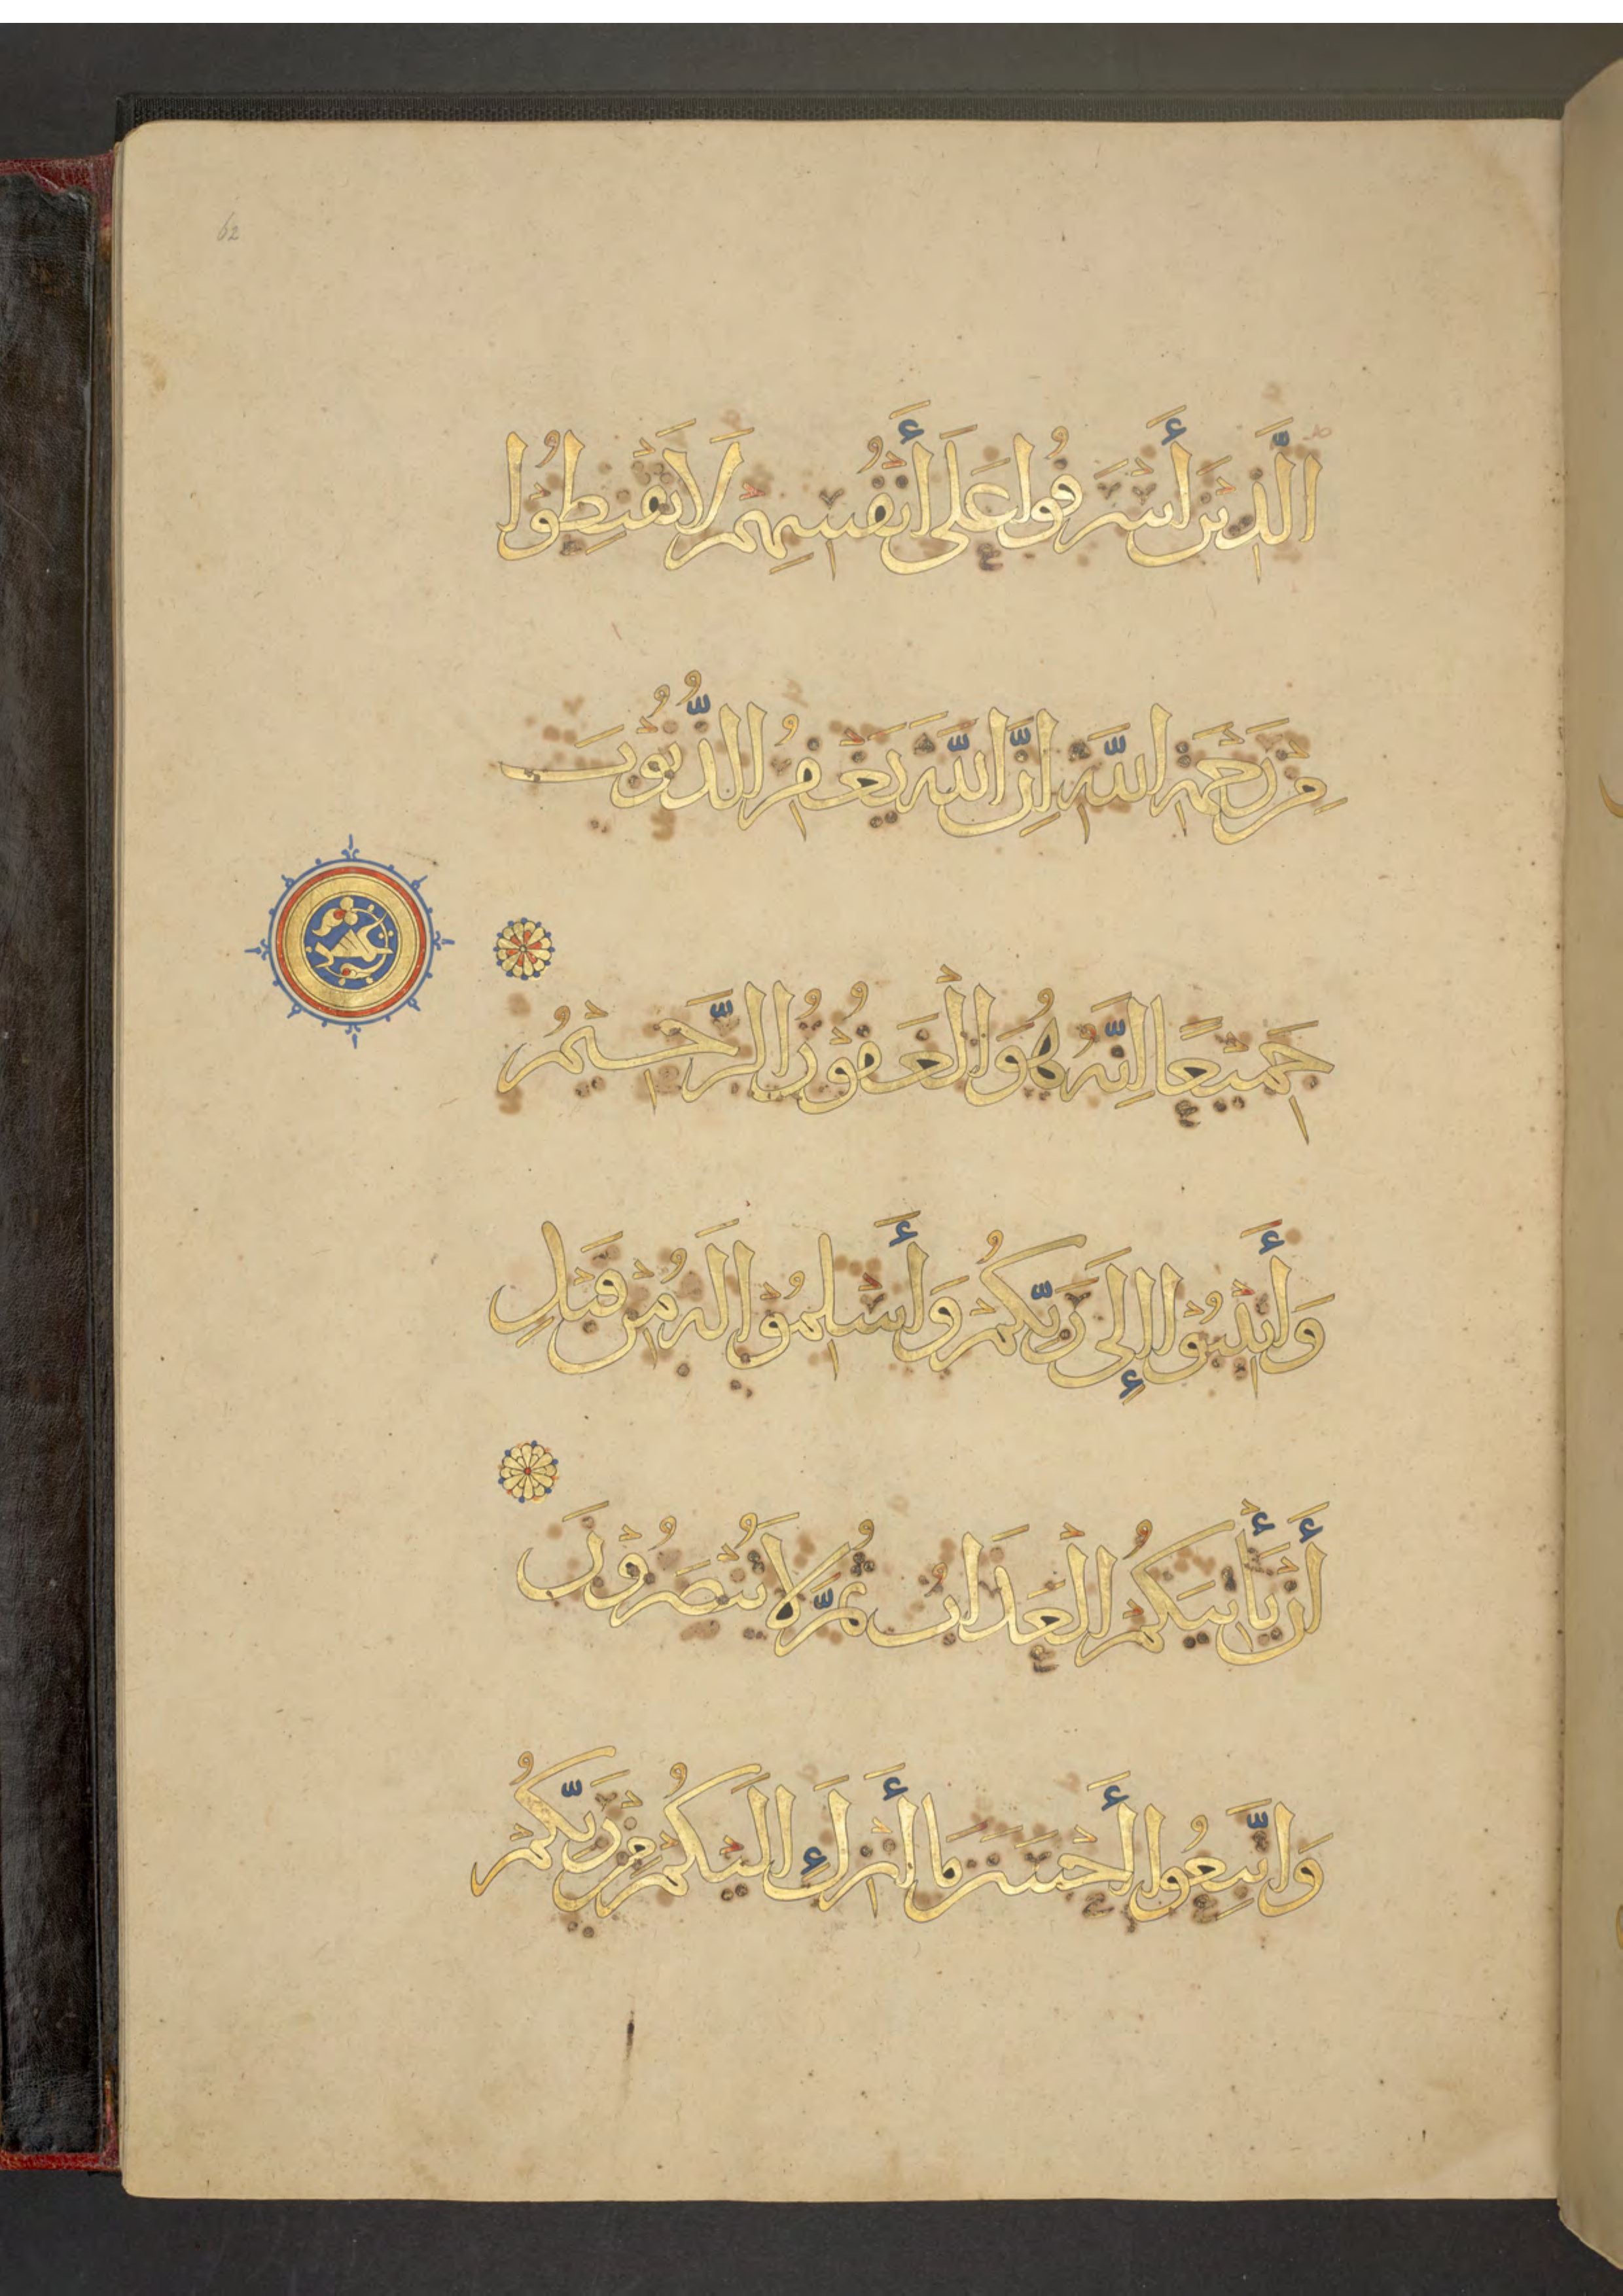 62
الَّذِينَ أَسْرَفُوا عَلَى أَنْفُسِهِمْ لَا تَقْنَطُوا
مِنْ رَحْمَةِ اللَّهِ إِنَّ اللَّهَ يَغْفِرُ الذُّنُوبَ
جَمِيعًا إِنَّهُ هُوَ الْغَفُورُ الرَّحِيمُ
وَأَنِيبُوا إِلَى رَبِّكُمْ وَأَسْلِمُوا لَهُ مِنْ قَبْلِ
أَنْ يَأْتِيَكُمُ الْعَذَابُ ثُمَّ لَا تُنْصَرُونَ
وَاتَّبِعُوا أَحْسَنَ مَا أُنْزِلَ إِلَيْكُمْ مِنْ رَبِّكُمْ